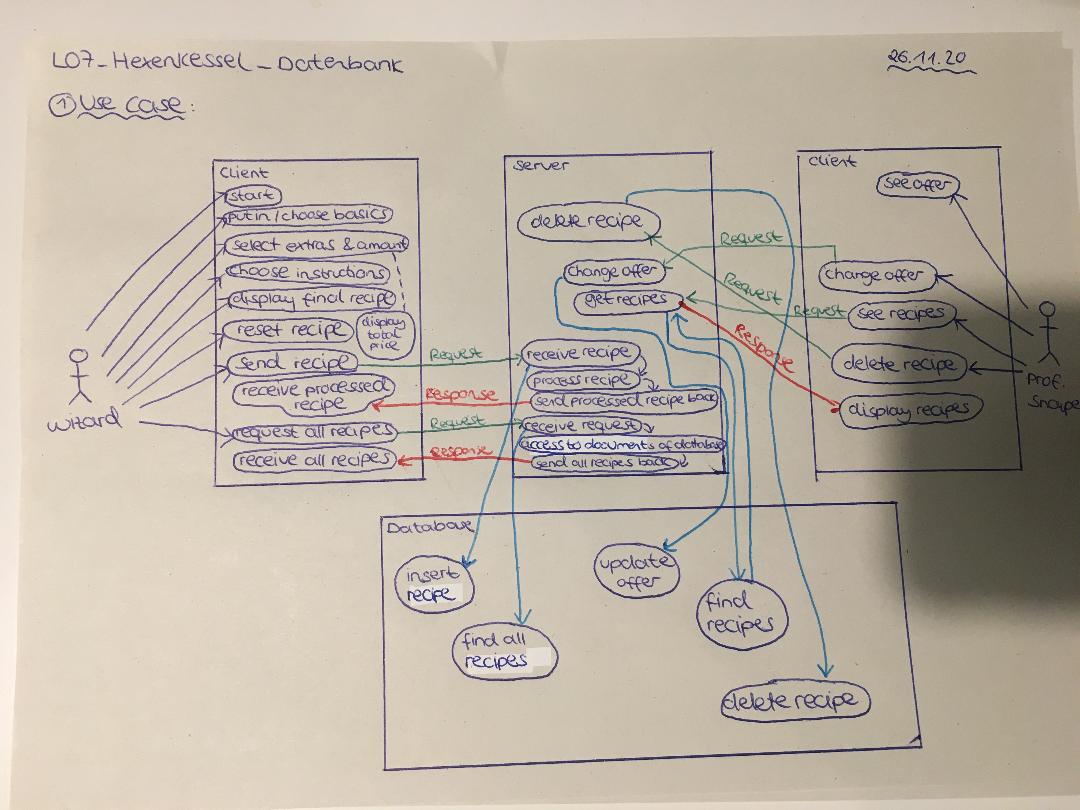 L07_Hexenkessel_Datenbank
26.11.20
① Use Case:
Client
start
put in / choose basics
select extras & amount
choose instructions
display final recipe
reset recipe
display
total
price
send recipe
receive processed
recipe
request all recipes
receive all recipes
Wizard
Request
Response
Request
Response
Server
delete recipe
change offer
get recipes
receive recipe
process recipe
send processed recipe back
receive request
access to documents of database
send all recipes back
Request
Request
Request
Response
Client
see offer
change offer
see recipes
delete recipe
display recipes
Prof.
Snape
Database
insert
recipe
find all
recipes
update
offer
find
recipes
delete recipe